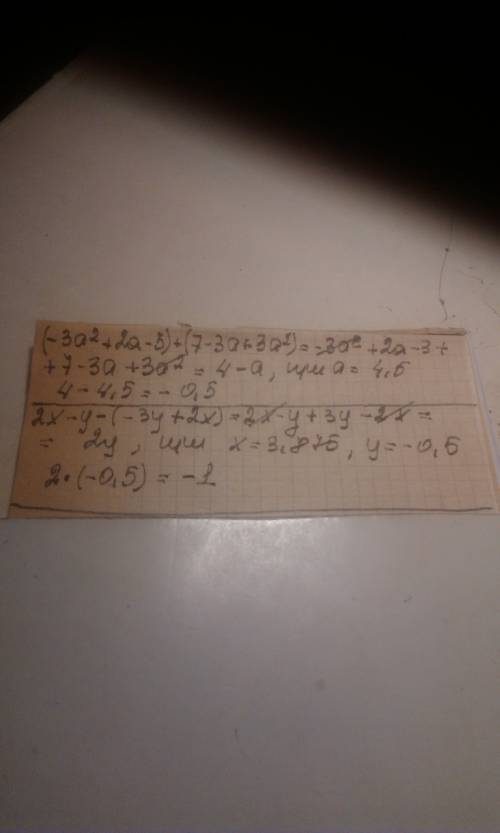 (-3a²+2a-3)+(7-3a+3a²)=-3a²+2a-3+
+7-3a+3a²=4-a, при a=4,5
4-4,5=-0,5
2x-y-(-3y+2x)=2x-y+3y-2x=
= 2y, при x=3,875, y=-0,5
2·(-0,5)=-1